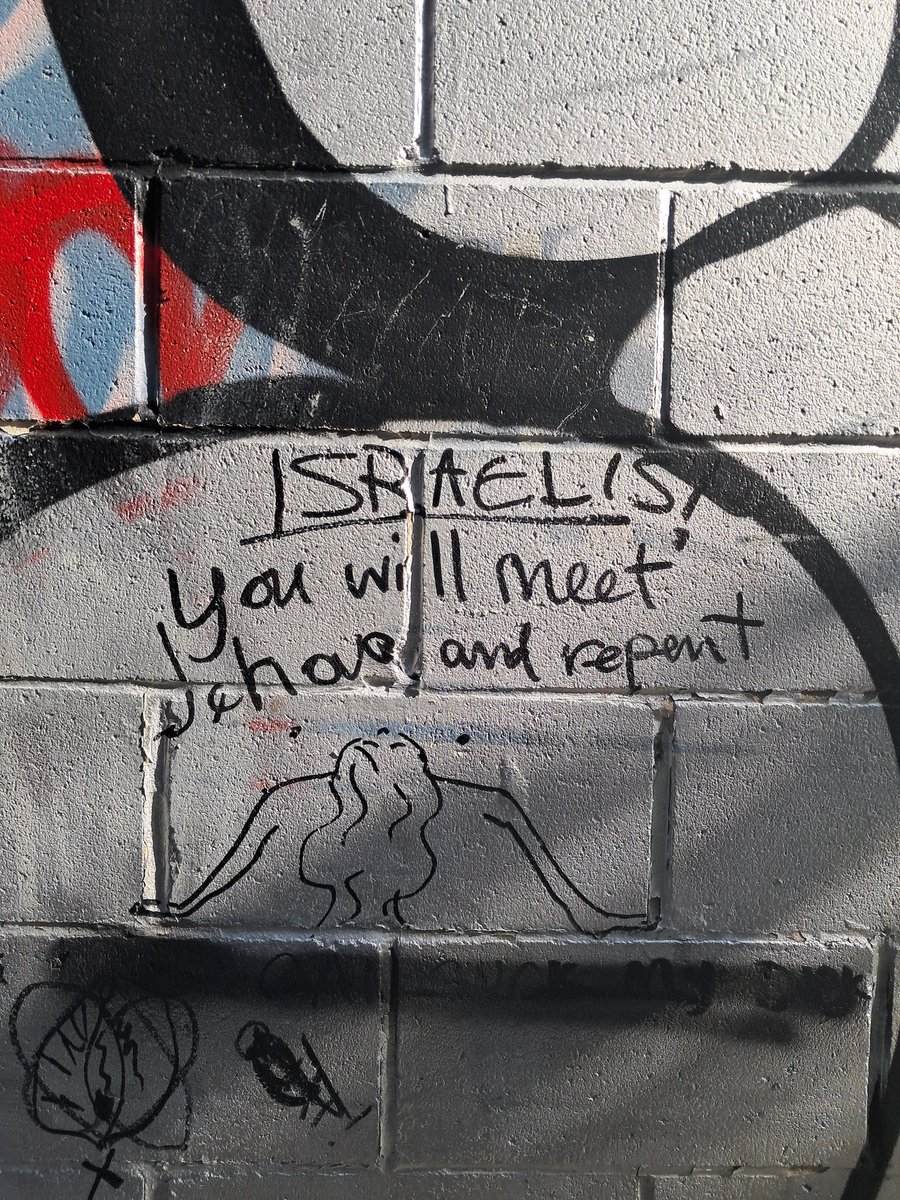 ISRAELIS!
You will meet
Jehova and repent
suck my dick